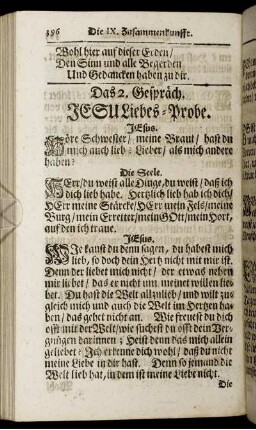 386 Die IX. Zusammenkunfft.
Wohl hier auf dieser Erden/
Den Sinn und alle Begerden
Und Gedancken haben zu dir.
Das 2. Gespräch.
JESU Liebes-Probe.
JEsus.
Höre Schwester/ meine Braut/ hast du
mich auch lieb? Lieber/ als mich andere
haben?
Die Seele.
HErr/ du weist alle Dinge, du weist/ daß ich
dich lieb habe. Hertzlich lieb hab ich dich/
HErr meine Stärcke/ HErr mein Fels/ meine
Burg/ mein Erretter/ mein Gott/ mein Hort,
auf den ich traue.
JEsus.
WIe kanst du denn sagen, du habest mich
lieb, so doch dein Hertz nicht mit mir ist.
Denn der liebet mich nicht/ der etwas neben
mir liebet/ das er nicht um meinet willen lie-
bet. Du hast die Welt allzulieb/ und wilt zu-
gleich mich und auch die Welt im Hertzen ha-
ben/ das gehet nicht an. Wie freuest du dich
offt mit der Welt/ wie suchest du offt dein Ver-
gnügen darinnen; Heist denn das mich allein
geliebet? Ich erkenne dich wohl/ daß du nicht
meine Liebe in dir hast. Denn so jemand die
Welt lieb hat, in dem ist meine Liebe nicht.
Die